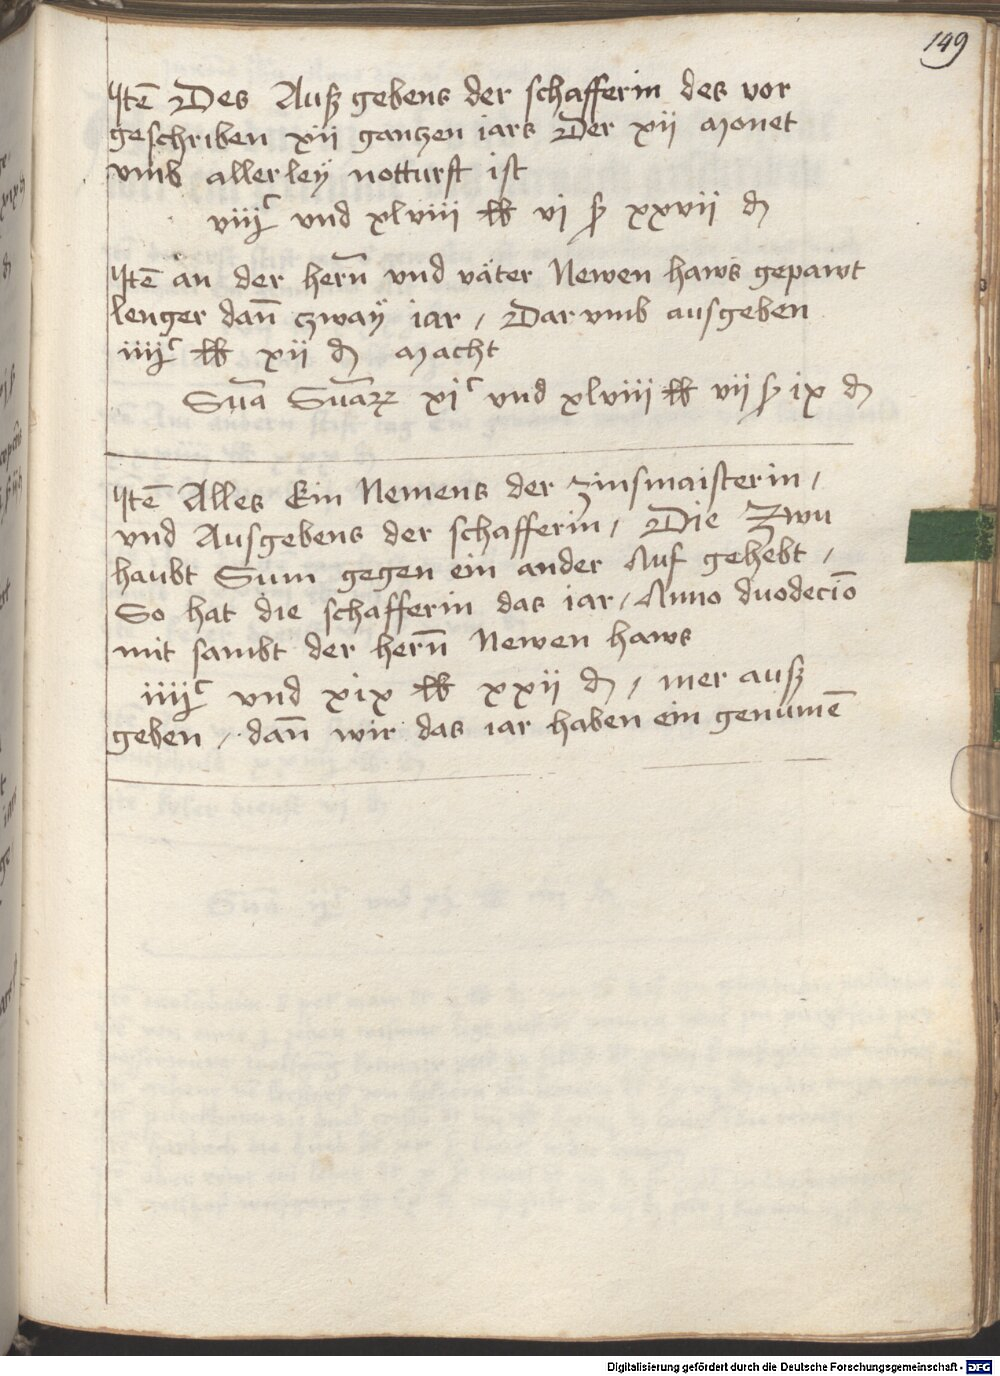 149
Itē Des Auß gebens der schafferin des vor
geschriben xij gantzen iars Der xij Monet
vmb allerley notturft ist
viijᶜ vnd xlviii lb vj ß xxvij d
Itē an der hern̄ vnd väter Newen haws gepawt
lenger dan̄ czwaÿ iar / Dar vmb ausgeben
iiijᶜ lb xij d Macht
Sūa Sūarꝝ xjᶜ vnd xlviii lb vij ß ix d
Itē Alles Ein Nemens der Zinsmaisterin /
vnd Ausgebens der schafferin / Die Zwu
haubt Sum gegen ein ander Auf gehebt /
So hat die schafferin das iar / Anno duodecīo
mit sambt der hern̄ Newen haws
iiijᶜ vnd xix lb xxij d / mer auß
geben / dan̄ wir das iar haben ein genumē
Digitalisierung gefördert durch die Deutsche Forschungsgemeinschaft - DFG